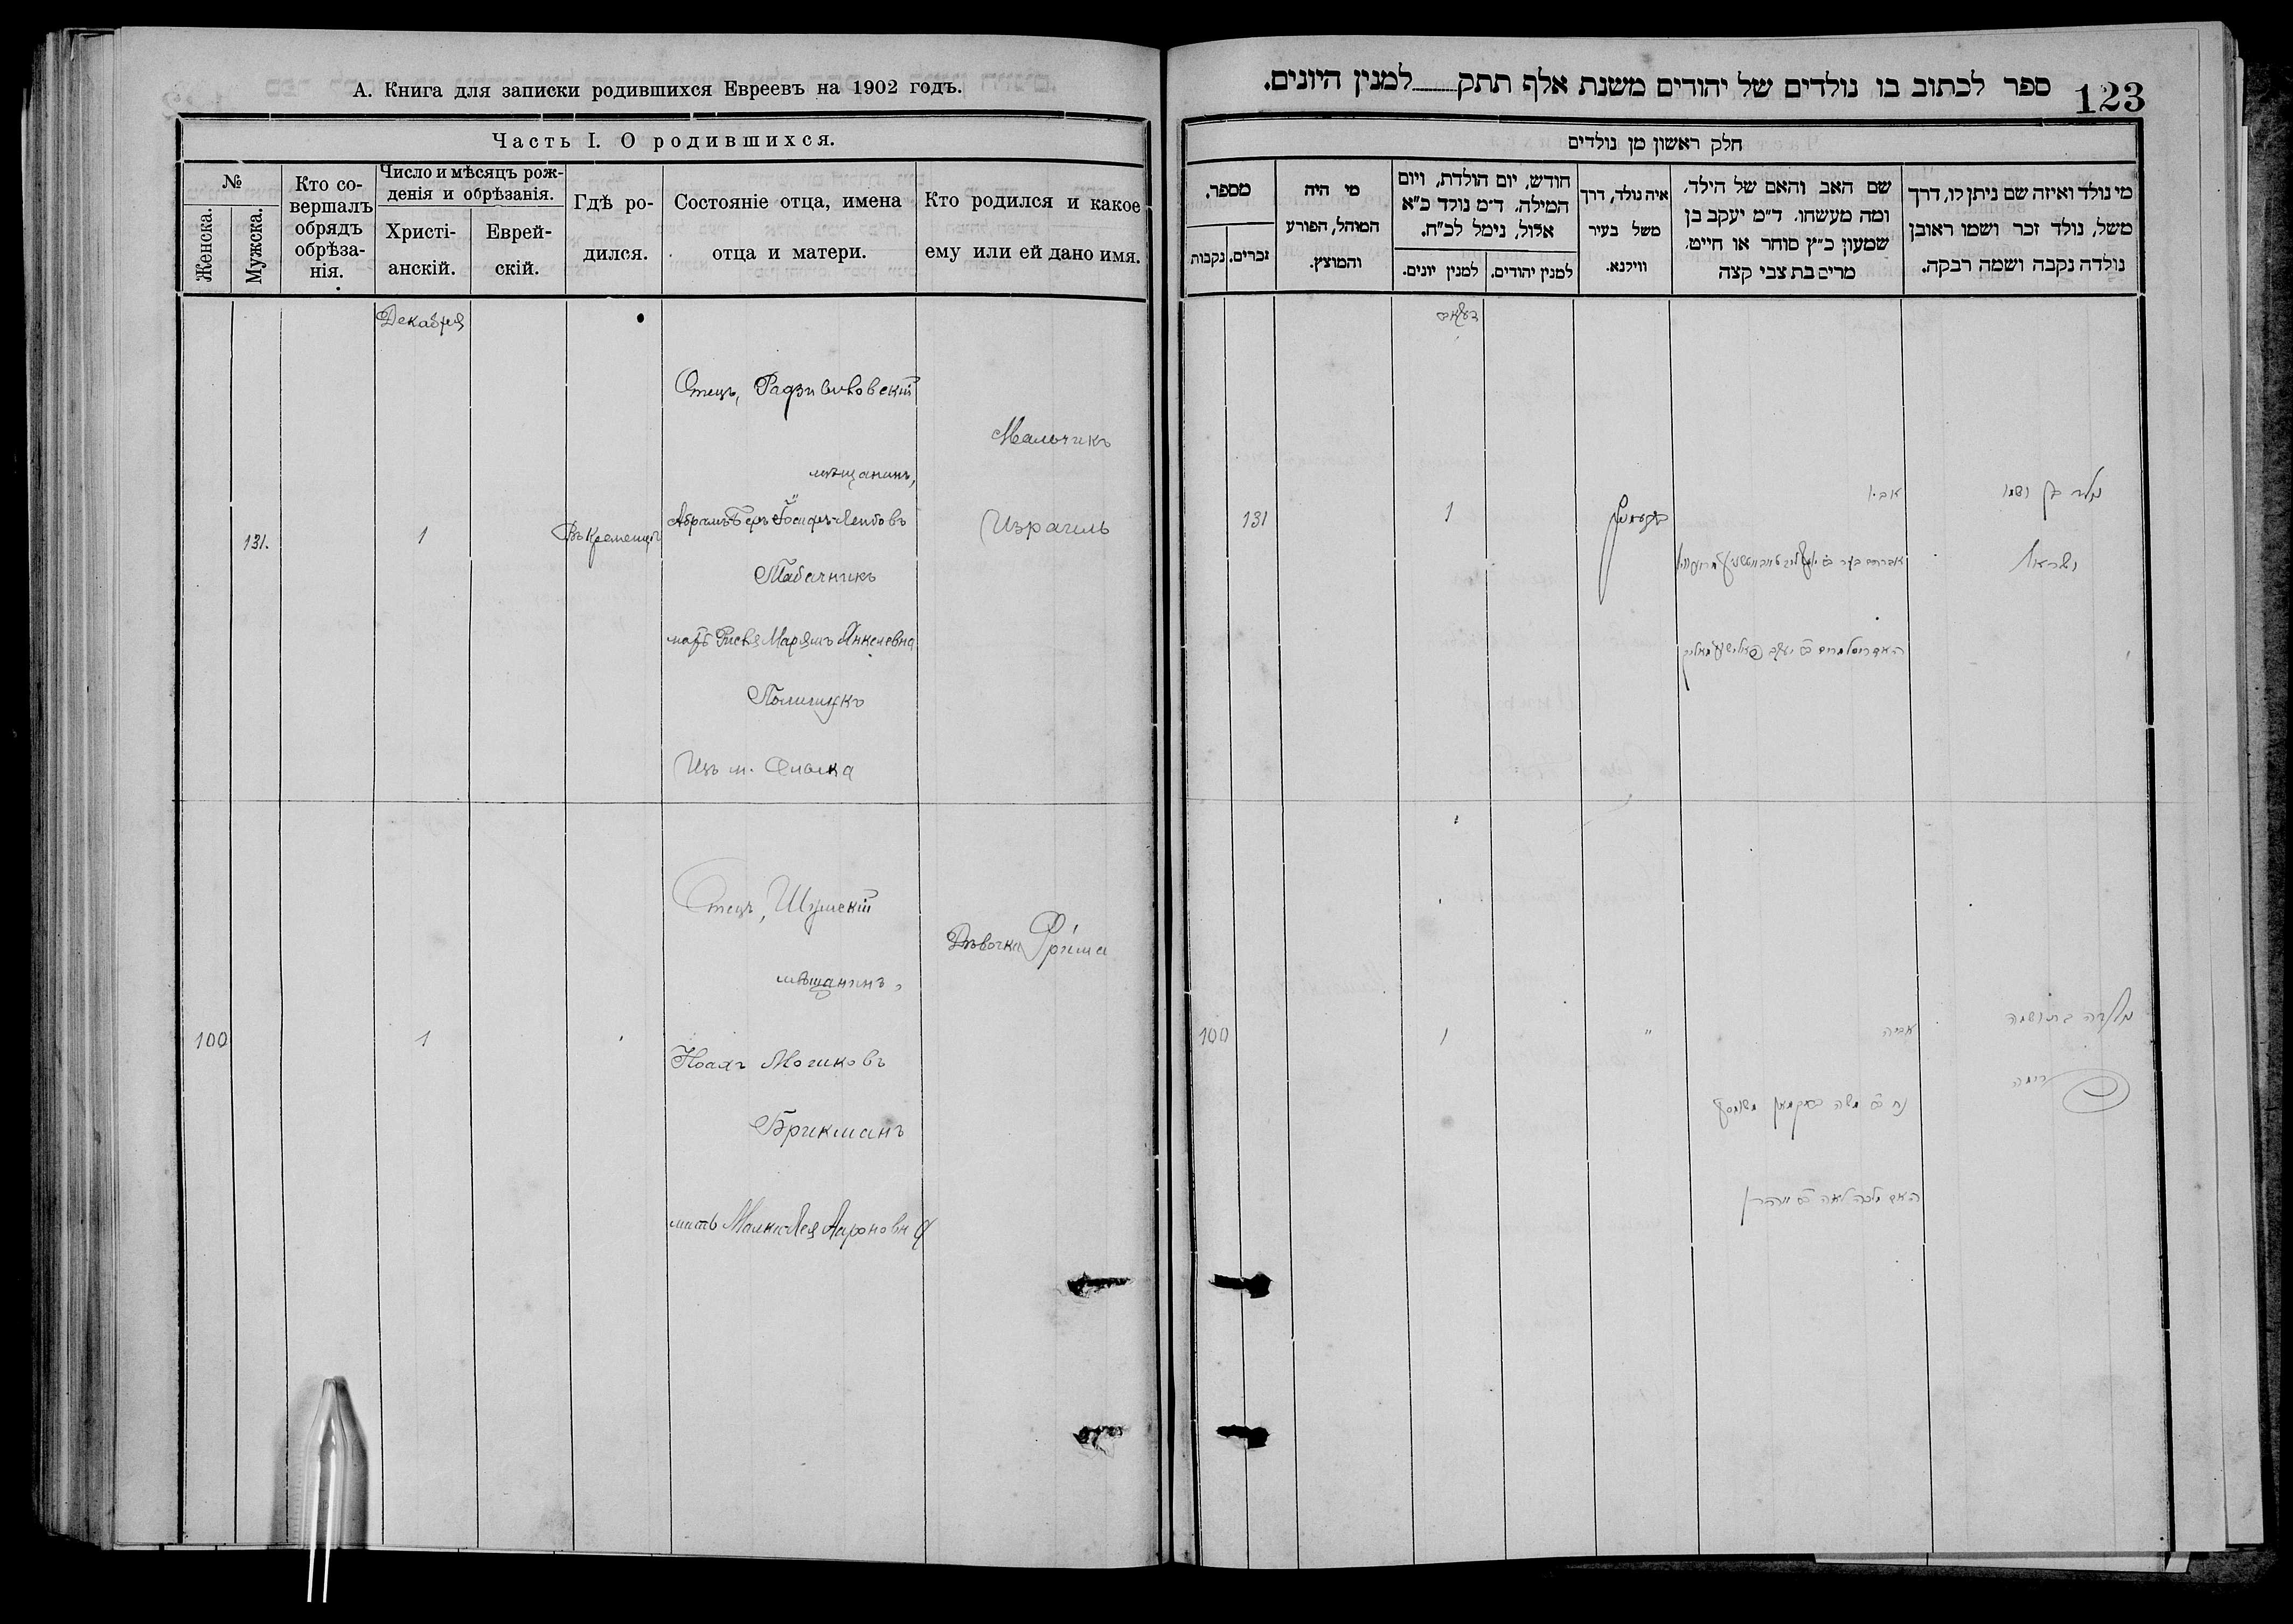 А. Книга для записки родившихся Евреевъ на 1902 годъ.
Часть I. О родившихся.
№
Женска.
Мужска.
Кто со-
вершалъ
обрядъ
обрѣза-
нія.
Число и мѣсяцъ рож-
денія и обрѣзанія.
Христі-
анскій.
Еврей-
скій.
Гдѣ ро-
дился.
Состояніе отца, имена
отца и матери.
Кто родился и какое
ему или ей дано имя.
Декабря
131.
1
Въ Кременцѣ
Отецъ, Радзивиловскій
мѣщанинъ,
Абрамъ Беръ Іосифъ-Лейбовъ
Табачникъ
мать Мариямъ Янкелевна
Полищукъ
Изъ м. Олыка
Мальчикъ
Израиль
100
1
Отецъ, Шумскій
мѣщанинъ,
Ноахъ Мошковъ
Брикманъ
мать Малка Лея Ароновна
Дѣвочка Фрима
ספר לכתוב בו נולדים של יהודים משנת אלף תתק למנין היונים.
123
חלק ראשון מן נולדים
מי נולד ואיזה שם ניתן לו, דרך
משל, נולד זכר ושמו ראובן
נולדה נקבה ושמה רבקה.
שם האב והאם של הילד.
ומה מעשהו. ד״מ יעקב בן
שמעון כ״ץ סוחר או חייט.
מרים בת צבי קצה
איה נולד, דרך
משל בעיר
ווילנא.
חודש, יום הולדת, ויום
המילה. ד״מ נולד כ״א
אלול, נימל לכ״ח.
למנין יהודים.
למנין יונים.
מי היה
המוהל, הפורע
והמוצץ.
מספר.
זכרים.
נקבות
131
1
אביו
נולד בן ושמו
ישראל
100
1
"
אביה
נח ב״ר משה בריקמאן
האם מלכה לאה
נולדה בת ושמה
פרימה